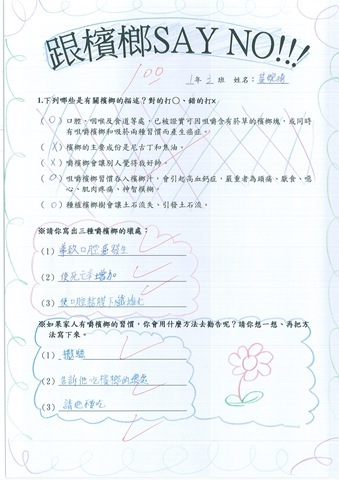 跟檳榔SAY NO!!!
100
1年 班 姓名：
1.下列哪些是有關檳榔的描述？對的打○、錯的打×
(○) 口腔、咽喉及食道等處，已被證實可因咀嚼含有菸草的檳榔塊，或同時
有咀嚼檳榔和吸菸兩種習慣而產生癌症。
(×) 檳榔的主要成份是尼古丁和焦油。
(×) 嚼檳榔會讓別人覺得我好帥。
(○) 咀嚼檳榔習慣吞檳榔汁，會引起高血鈣症，嚴重者為頭痛、厭食、噁
心、肌肉疼痛、神智模糊。
(○) 種植檳榔會讓土石流失、引發土石流。
※請你寫出三種嚼檳榔的壞處：
(1) 導致口腔癌發生
(2) 使死亡率增加
(3) 使口腔黏膜下纖維化
※如果家人有嚼檳榔的習慣，你會用什麼方法去勸告呢？請你想一想、再把方
法寫下來。
(1)
(2) 告訴他吃檳榔的壞處
(3) 請他種吃